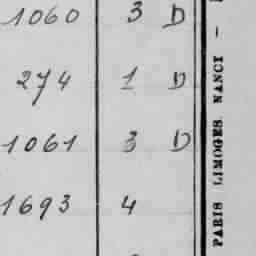 1060 3 D
274 1 D
1061 3 D
1693 4
PARIS LIMOGES NANCY —